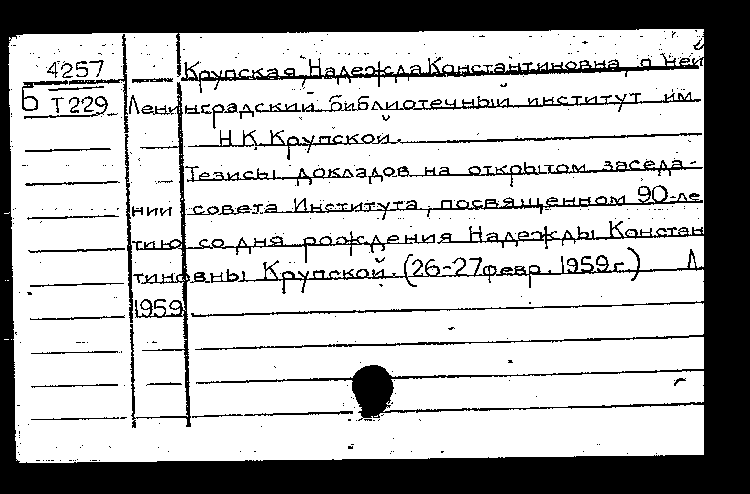 4257 Крупская, Надежда Константиновна, о ней
Б Т229 Ленинградский библиотечный институт им.
Н.К. Крупской.
Тезисы докладов на открытом заседа-
нии совета Института, посвященном 90-ле
тию со дня рождения Надежды Констан
тиновны Крупской. (26-27 февр. 1959 г.) Л.
1959